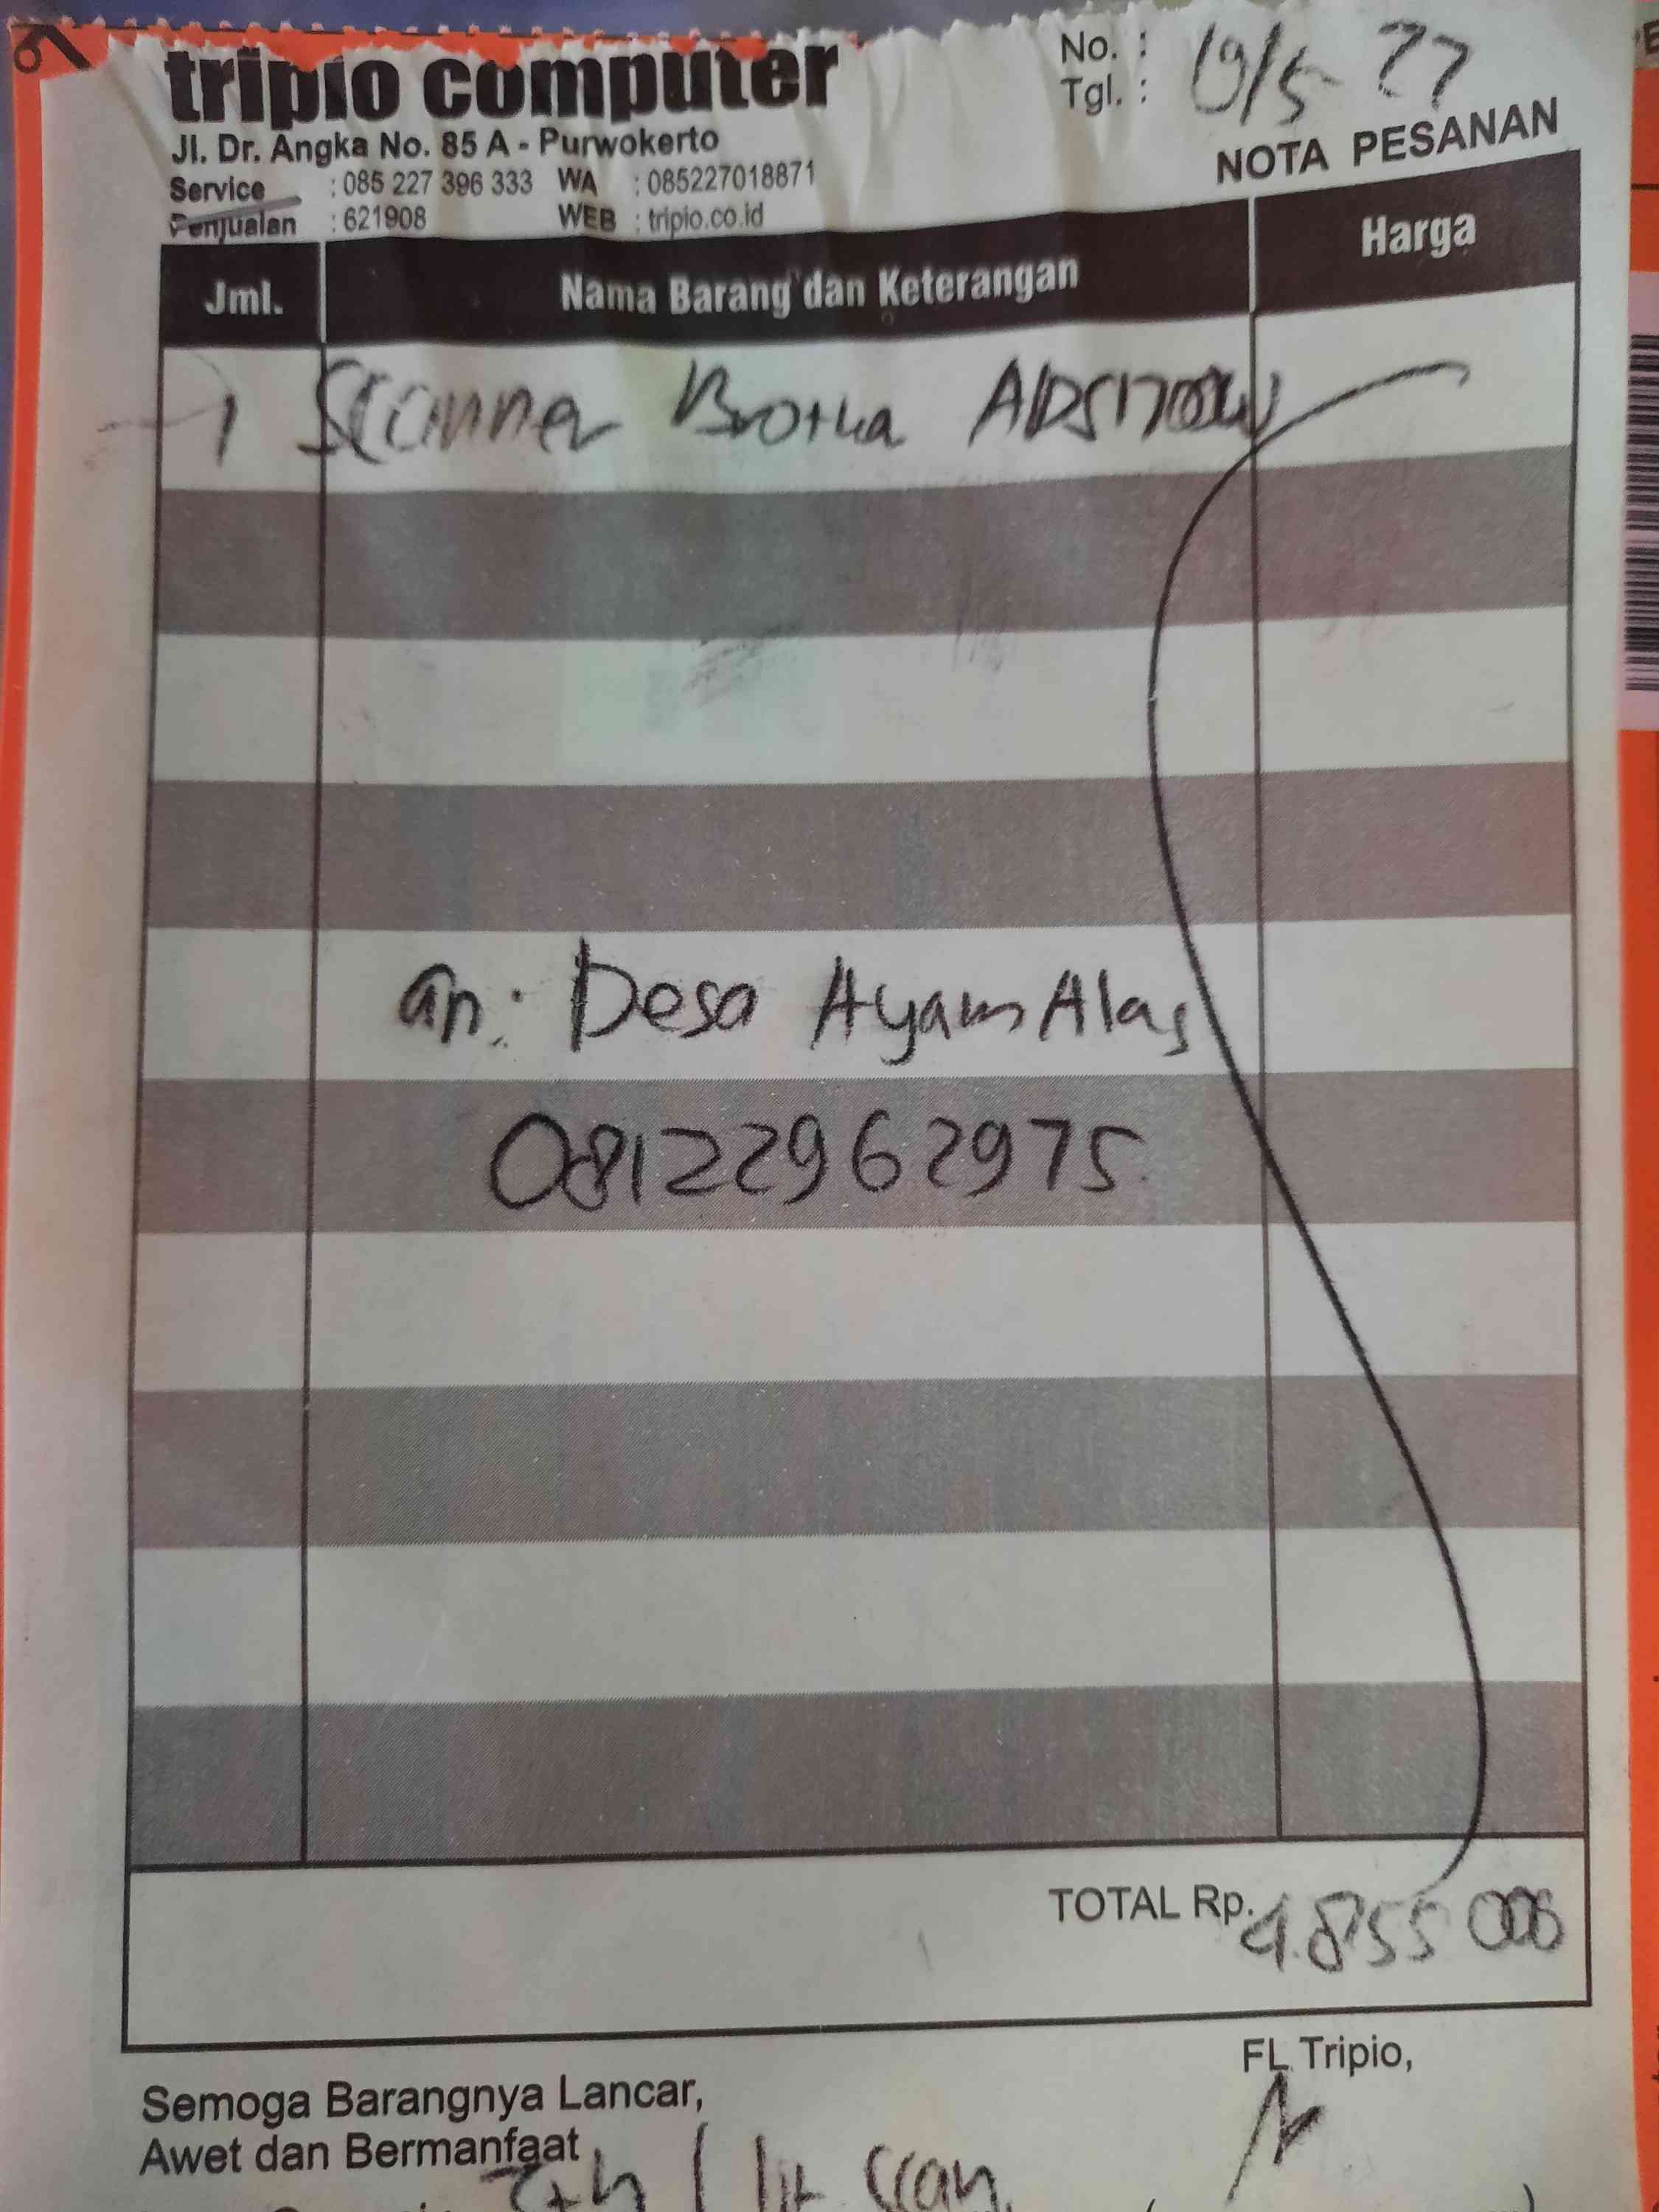 tripio computer
Jl. Dr. Angka No. 85 A - Purwokerto
Service : 085 227 396 333 WA : 085227018871
Penjualan : 621908 WEB : tripio.co.id
No. :
Tgl. : 19/5 22
NOTA PESANAN
Jml. Nama Barang dan Keterangan Harga
1 Scanner Brother ADS1700W
an: Desa Ayam Alas
08122962975
TOTAL Rp. 4.855 000
FL Tripio,
Semoga Barangnya Lancar,
Awet dan Bermanfaat
scan